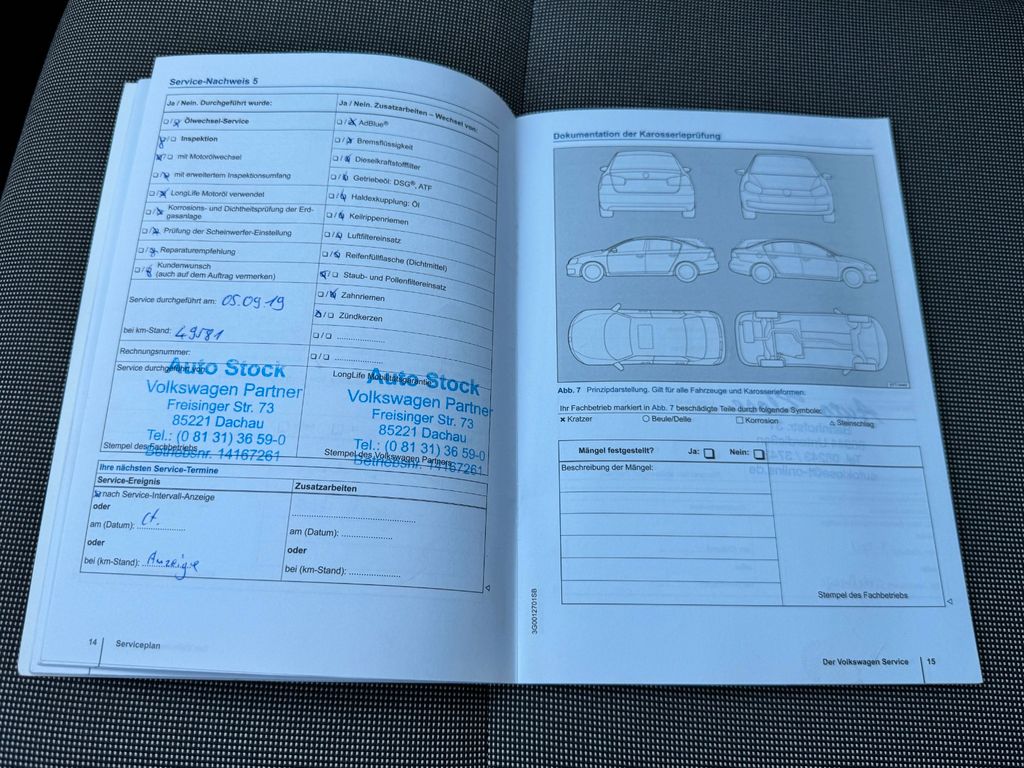 Service-Nachweis 5
Ja / Nein. Durchgeführt wurde:
Ölwechsel-Service
Inspektion
mit Motorölwechsel
mit erweitertem Inspektionsumfang
LongLife Motoröl verwendet
Korrosions- und Dichtheitsprüfung der Erd-
gasanlage
Prüfung der Scheinwerfer-Einstellung
Reparaturempfehlung
Kundenwunsch
(auch auf dem Auftrag vermerken)
Service durchgeführt am: 05.09.19
bei km-Stand: 49581
Rechnungsnummer:
Service durchgeführt von:
Auto Stock
Volkswagen Partner
Freisinger Str. 73
85221 Dachau
Tel.: (0 81 31) 36 59-0
Betriebsnr. 14167261
Stempel des Fachbetriebs
Ja / Nein. Zusatzarbeiten – Wechsel von:
AdBlue®
Bremsflüssigkeit
Dieselkraftstofffilter
Getriebeöl: DSG®, ATF
Haldexkupplung: Öl
Keilrippenriemen
Luftfiltereinsatz
Reifenfüllflasche (Dichtmittel)
Staub- und Pollenfiltereinsatz
Zahnriemen
Zündkerzen
LongLife Mobilitätsgarantie
Auto Stock
Volkswagen Partner
Freisinger Str. 73
85221 Dachau
Tel.: (0 81 31) 36 59-0
Betriebsnr. 14167261
Stempel des Volkswagen Partners
Ihre nächsten Service-Termine
Service-Ereignis
nach Service-Intervall-Anzeige
oder
am (Datum): lt.
oder
bei (km-Stand): Anzeige
Zusatzarbeiten
am (Datum):
oder
bei (km-Stand):
14 Serviceplan
Dokumentation der Karosserieprüfung
Abb. 7 Prinzipdarstellung. Gilt für alle Fahrzeuge und Karosserieformen.
Ihr Fachbetrieb markiert in Abb. 7 beschädigte Teile durch folgende Symbole:
× Kratzer ○ Beule/Delle □ Korrosion △ Steinschlag
Mängel festgestellt? Ja: Nein:
Beschreibung der Mängel:
Stempel des Fachbetriebs
3G0012701SB
Der Volkswagen Service 15